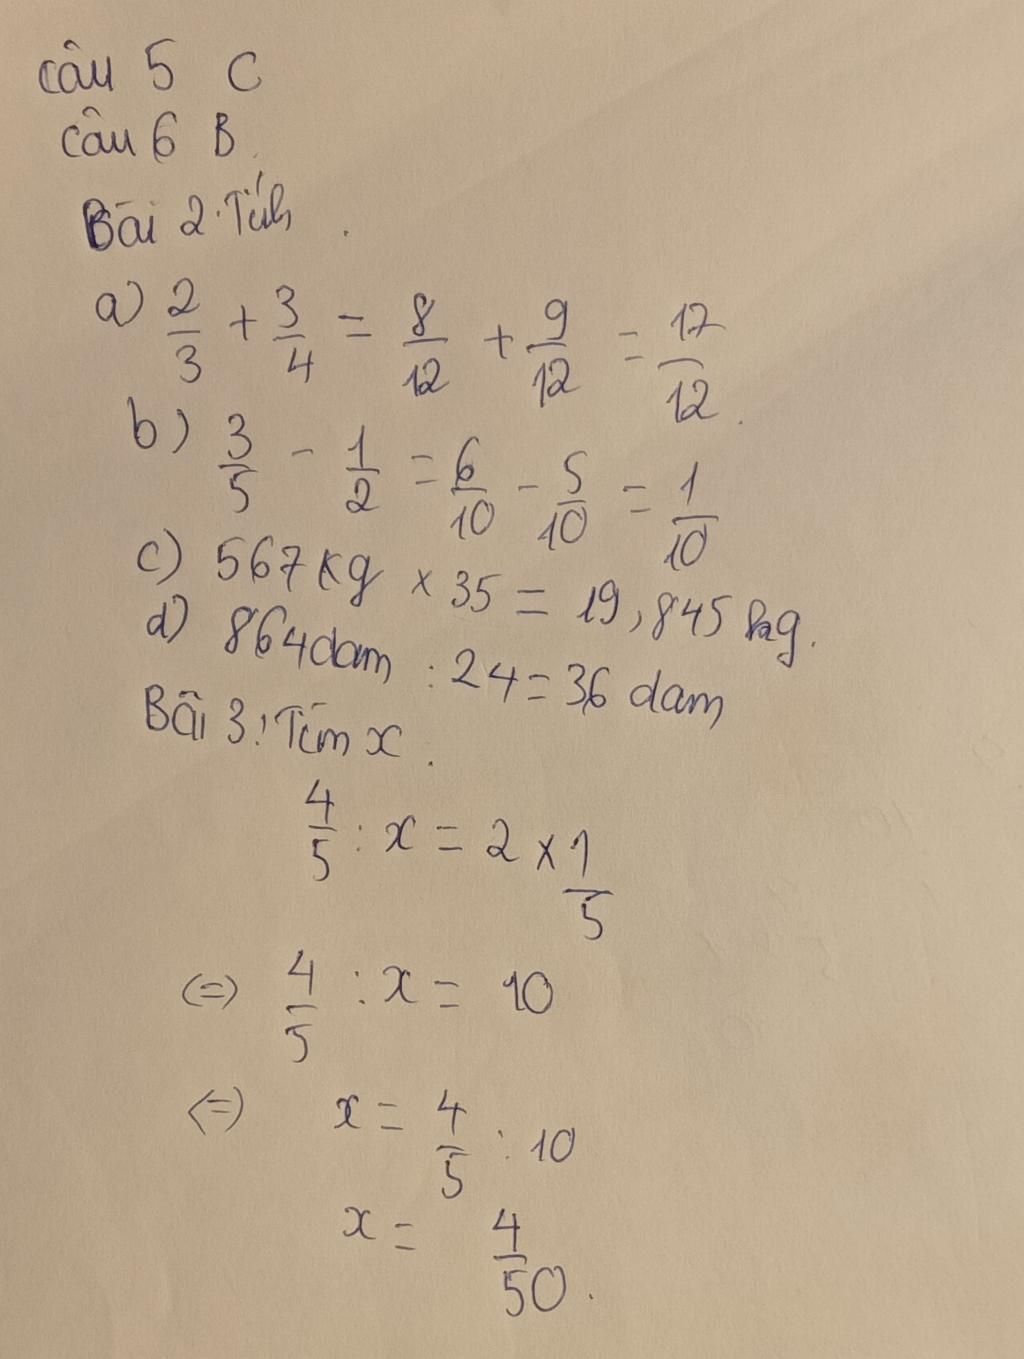 câu 5 C
câu 6 B.
Bài 2. Tính.
a) 2/3 + 3/4 = 8/12 + 9/12 = 17/12.
b) 3/5 - 1/2 = 6/10 - 5/10 = 1/10
c) 567kg × 35 = 19,845 kg.
d) 864dam : 24 = 36 dam
Bài 3: Tìm x.
4/5 : x = 2 × 1/5
(=) 4/5 : x = 10
(=) x = 4/5 : 10
x = 4/50.